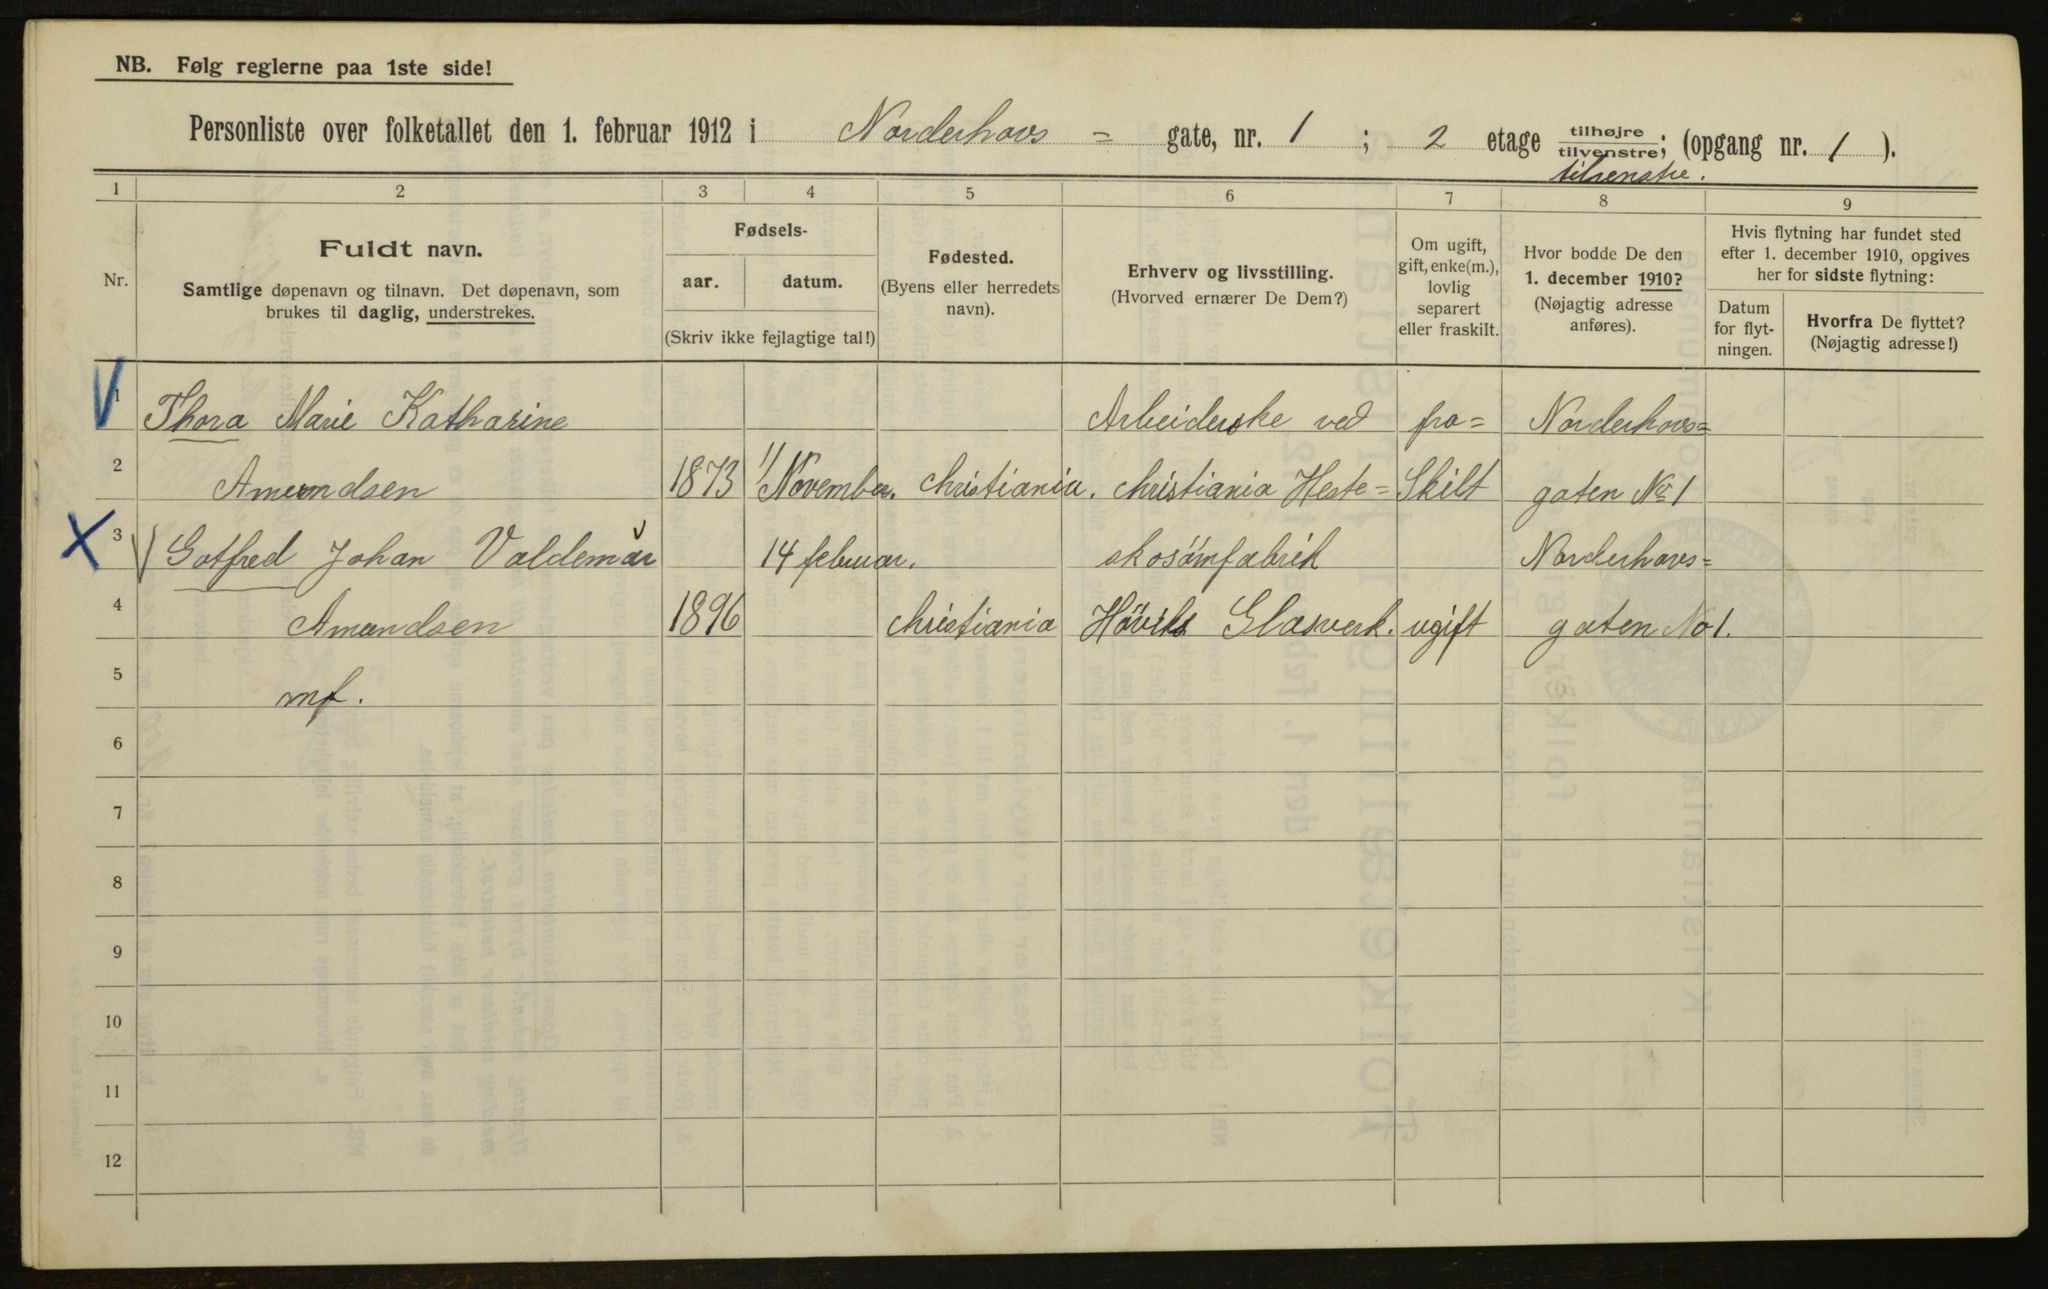 NB. Følg reglerne paa 1ste side!
Personliste over folketallet den 1. februar 1912 i Norderhovs = gate, nr. 1 ; 2 etage tilhøjre tilvenstre; (opgang nr. 1 ).
tilvenstre.
1 2 3 4 5 6 7 8 9
Nr.
Fuldt navn.
Samtlige døpenavn og tilnavn. Det døpenavn, som
brukes til daglig, understrekes.
Fødsels-
aar. datum.
(Skriv ikke fejlagtige tal!)
Fødested.
(Byens eller herredets
navn).
Erhverv og livsstilling.
(Hvorved ernærer De Dem?)
Om ugift,
gift, enke(m.),
lovlig
separert
eller fraskilt.
Hvor bodde De den
1. december 1910?
(Nøjagtig adresse
anføres).
Hvis flytning har fundet sted
efter 1. december 1910, opgives
her for sidste flytning:
Datum
for flyt-
ningen.
Hvorfra De flyttet?
(Nøjagtig adresse!)
1 Thora Marie Katharine Arbeiderske ved fra= Norderhovs=
2 Amundsen 1873 11/November. christiania. christiania Heste= Skilt gaten No 1
3 Gotfred Johan Valdemar 14 februar. skosömfabrik Norderhovs=
4 Amundsen 1896 christiania Höviks Glasverk. ugift gaten No 1.
5 mf.
6
7
8
9
10
11
12